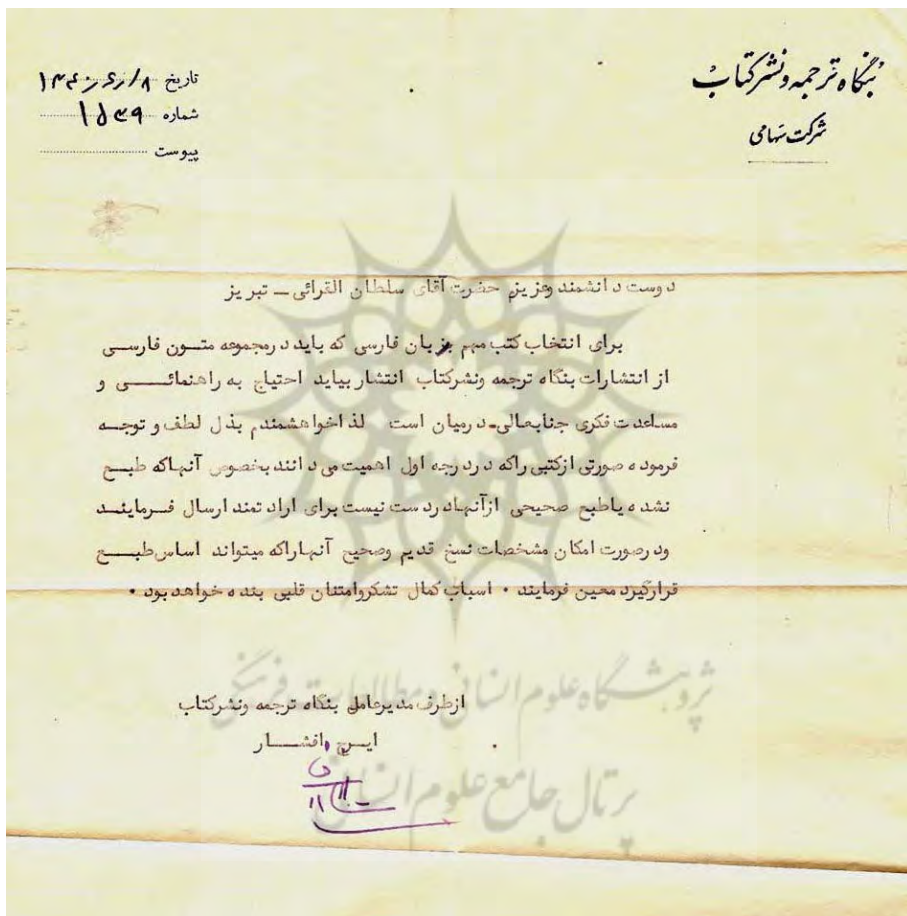 بنگاه ترجمه و نشر کتاب
شرکت سهامی
تاریخ
شماره ۱۵۳۹
پیوست
دوست دانشمند وعزیزم حضرت آقای سلطان القرائی ــ تبریز
برای انتخاب کتب مهم بزبان فارسی که باید درمجموعه متون فارسی
از انتشارات بنگاه ترجمه ونشرکتاب انتشار بیاید احتیاج به راهنمائی و
مساعدت فکری جنابعالی درمیان است لذا خواهشمندم بذل لطف و توجه
فرموده صورتی ازکتبی راکه دردرجه اول اهمیت می دانند بخصوص آنهاکه طبع
نشده یاطبع صحیحی ازآنهادردست نیست برای ارادتمند ارسال فرمایند
ودرصورت امکان مشخصات نسخ قدیم وصحیح آنهاراکه میتواند اساس طبع
قرارگیرد معین فرمایند ۰ اسباب کمال تشکروامتنان قلبی بنده خواهدبود ۰
ازطرف مدیرعامل بنگاه ترجمه ونشرکتاب
ایرج افشار
پژوهشگاه علوم انسانی و مطالعات فرهنگی
پرتال جامع علوم انسانی